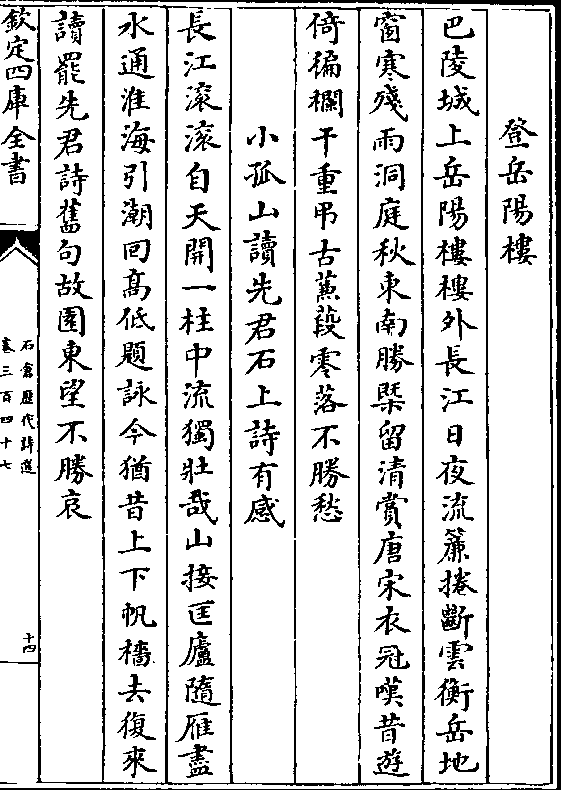 登岳陽樓
巴陵城上岳陽樓樓外長江日夜流簾捲斷雲衡岳地
窗寒殘雨洞庭秋東南勝槩留清賞唐宋衣冠嘆昔遊
倚徧欄干重弔古蒹葭零落不勝愁
小孤山讀先君石上詩有感
長江滚滚自天開一柱中流獨壯哉山接匡廬隨雁盡
水通淮海引潮回髙低題詠今猶昔上下帆檣去復來
讀罷先君詩舊句故園東望不勝哀
欽定四庫全書
石倉歷代詩選
卷三百四十七
十四